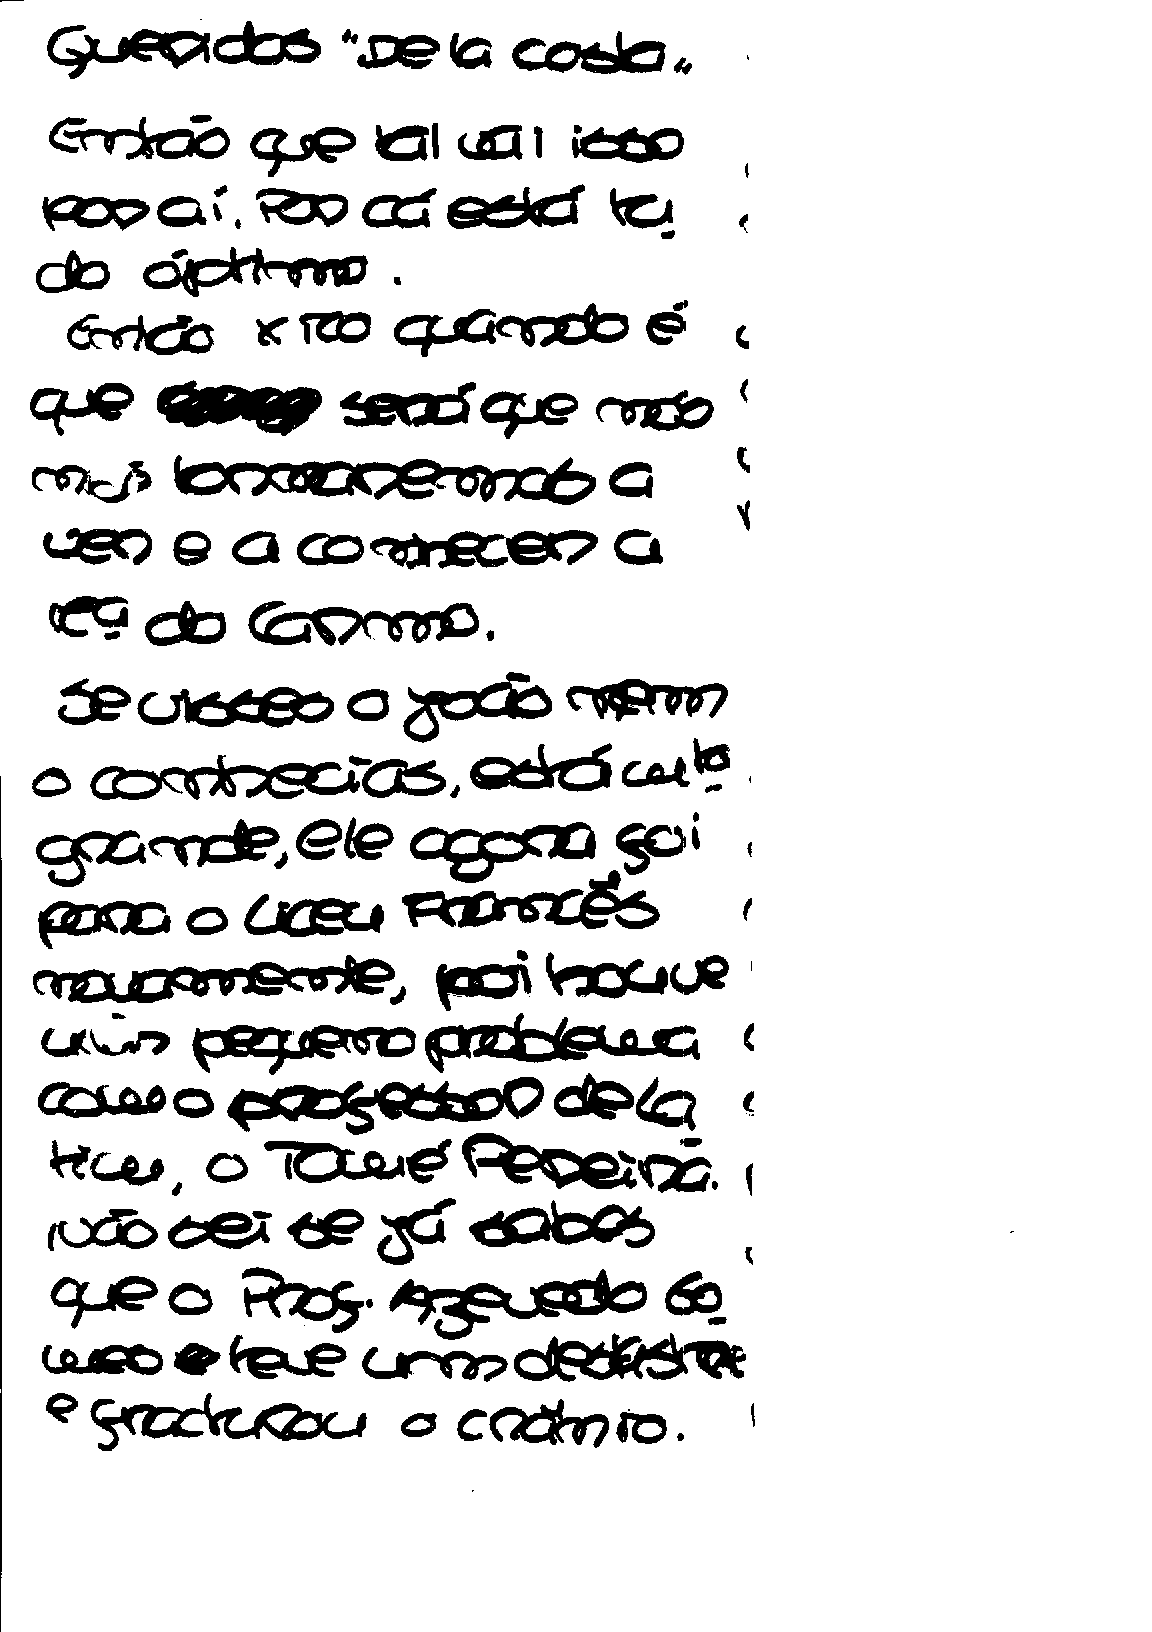 Queridos "De la costa"
Então que tal vai isso
por aí. Por cá está tu
do óptimo.
Então Kico quando é
que será que não
nos tornaremos a
ver e a conhecer a
do Carmo.
Se visses o joão nem
o conhecias, está alto
grande, ele agora foi
para o Liceu Francês
novamente, poi houve
um pequeno problema
com o professor de la
tim, o Tomé Pereira.
Não sei se já sabes
que o Prof. Azevedo Go
mes teve um desastre
e fracturou o crânio.